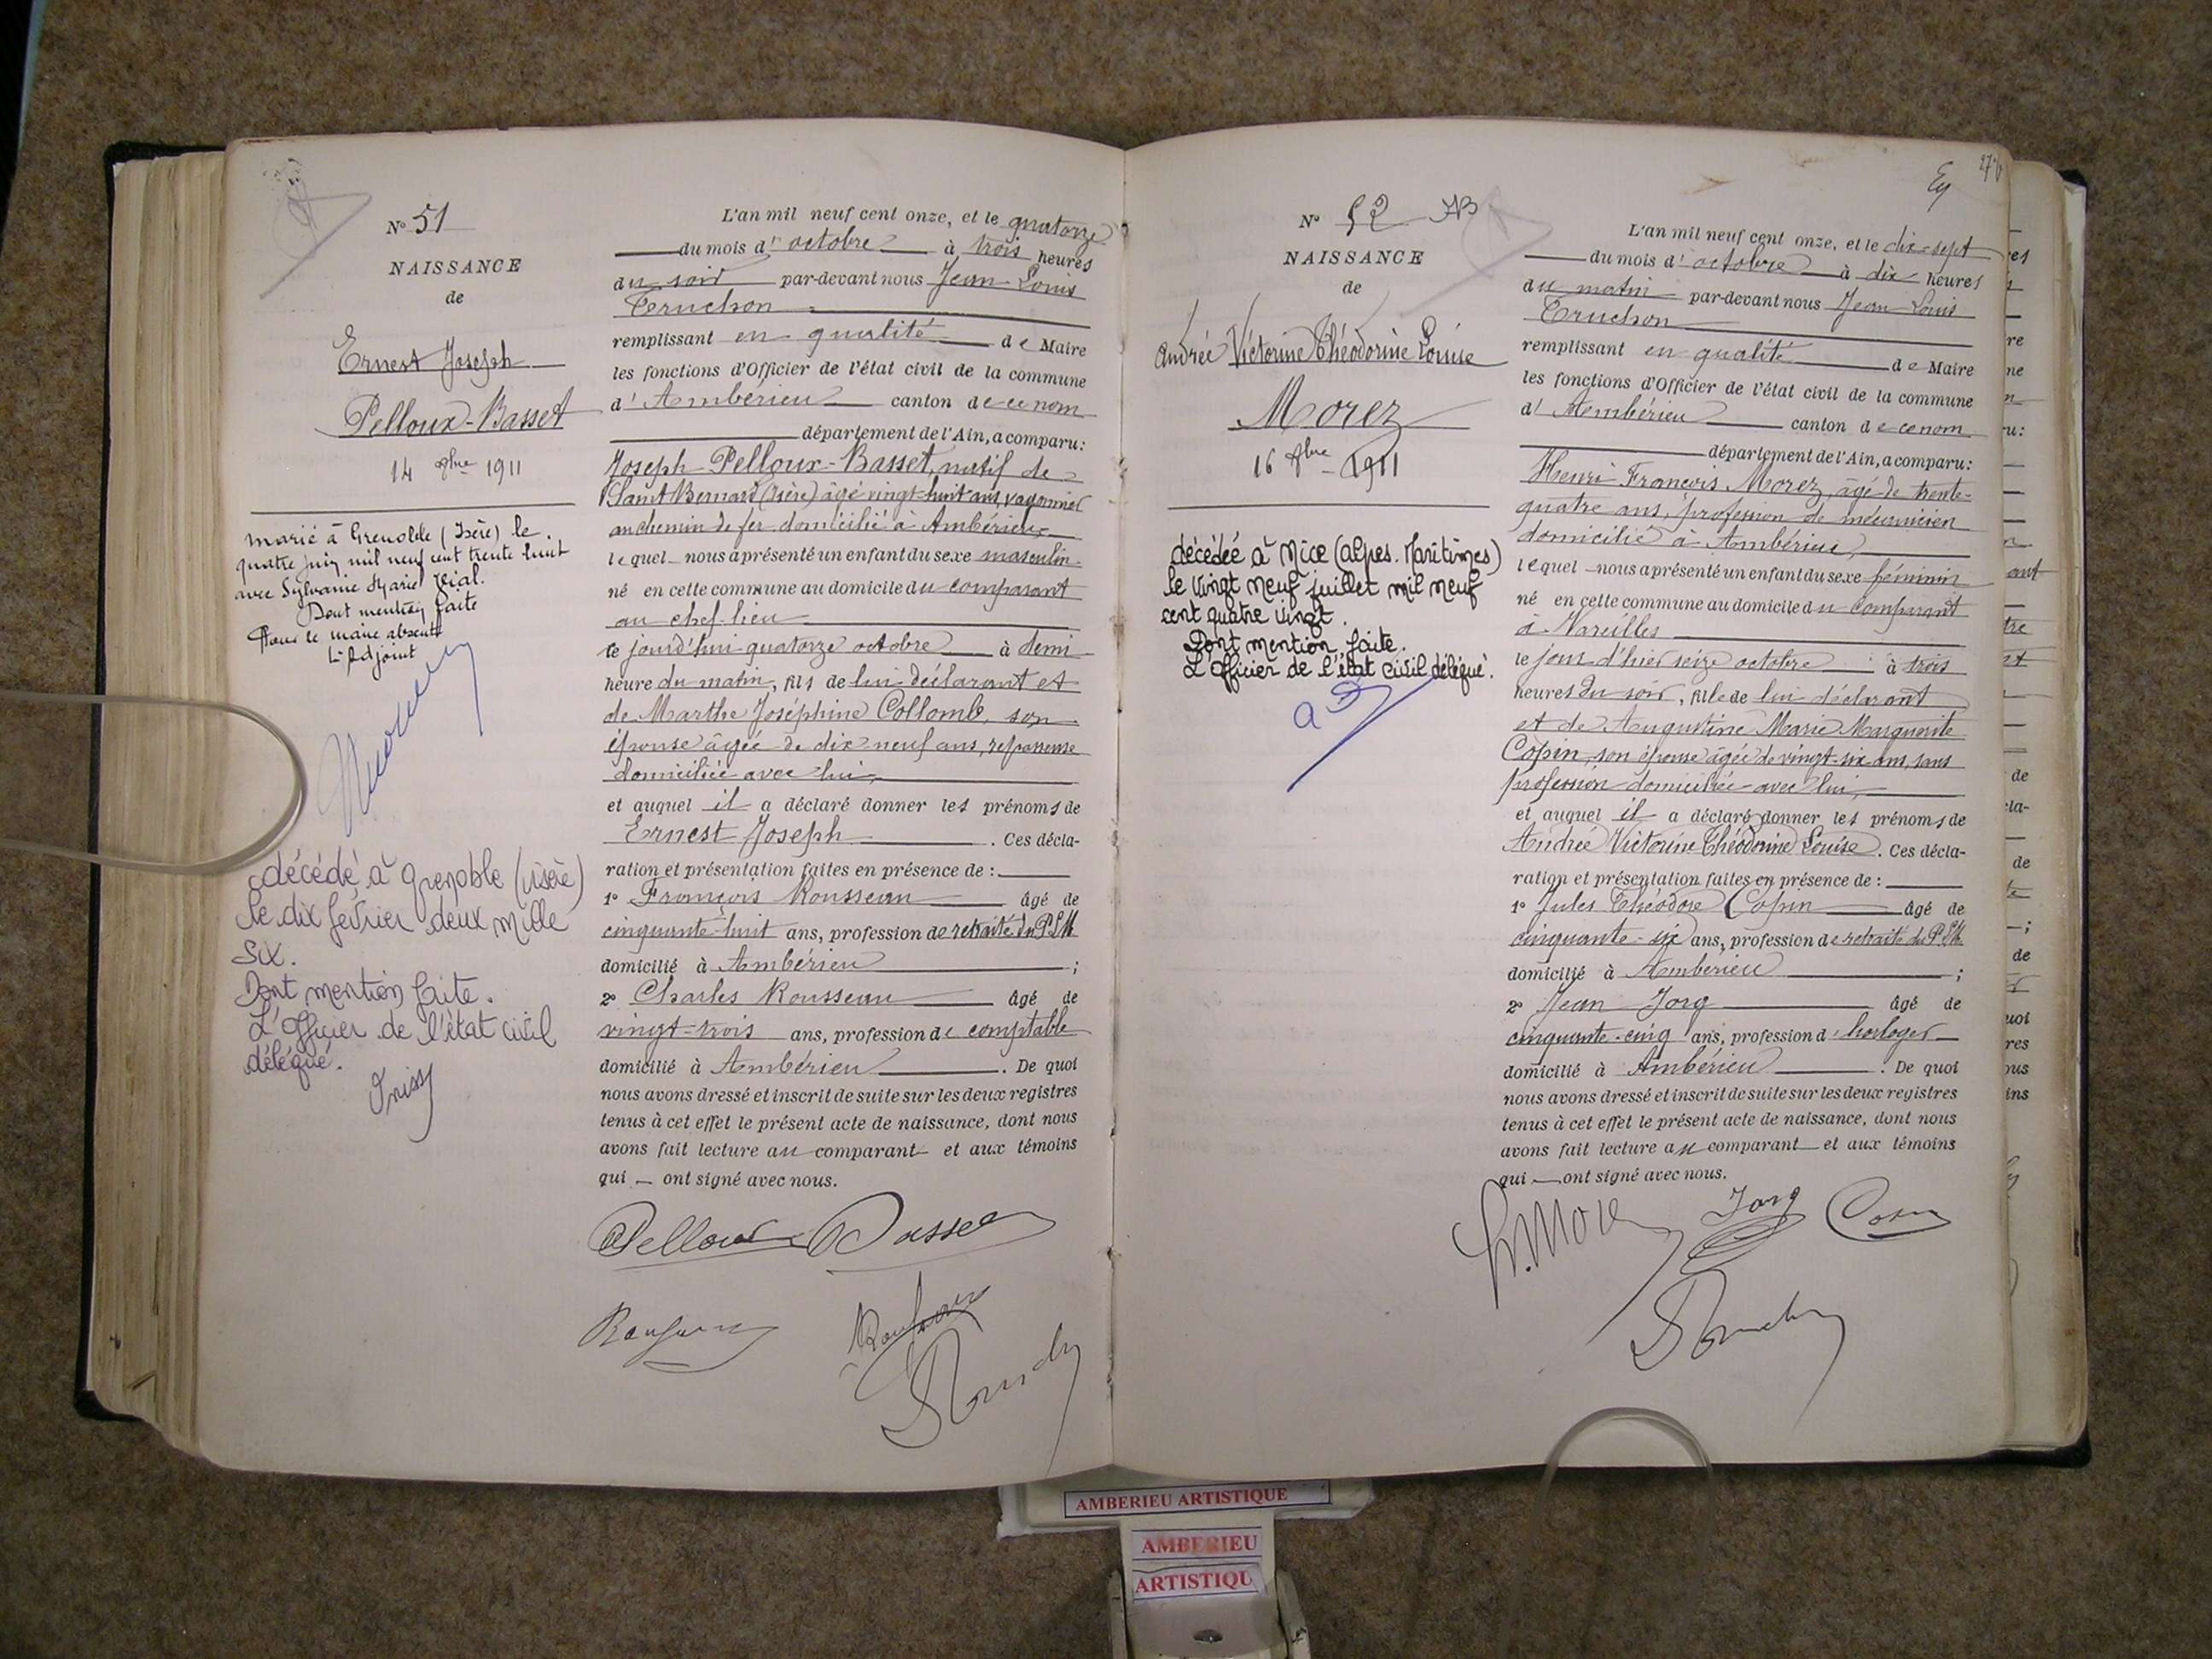 N° 51
NAISSANCE
de
Ernest Joseph
Pelloux-Basset
14 8bre 1911
marié à Grenoble (Isère) le
quatre juin mil neuf cent trente huit
avec Sylvanie
Dont mention faite
Pour le maire absent
L'Adjoint
décédé à Grenoble (Isère)
le dix février deux mille
six.
Dont mention faite.
L'Officier de l'état civil
délégué.
L'an mil neuf cent onze, et le quatorze
du mois d'octobre à trois heures
du soir par-devant nous Jean Louis
Truchon
remplissant en qualité de Maire
les fonctions d'Officier de l'état civil de la commune
d'Ambérieu canton de ce nom
département de l'Ain, a comparu:
Joseph Pelloux-Basset, natif de
Saint Bernard (Isère) âgé vingt-huit ans, wagonnier
au chemin de fer domicilié à Ambérieu
lequel nous a présenté un enfant du sexe masculin
né en cette commune au domicile du comparant
au chef-lieu
le jourd'hui quatorze octobre à demi
heure du matin, fils de lui déclarant et
de Marthe Joséphine Collomb, son
épouse âgée de dix neuf ans, repasseuse
domiciliée avec lui,
et auquel il a déclaré donner les prénoms de
Ernest Joseph. Ces décla-
ration et présentation faites en présence de :
1° François Rousseau âgé de
cinquante-huit ans, profession de retraité du P.L.M
domicilié à Ambérieu ;
2° Charles Rousseau âgé de
vingt-trois ans, profession de comptable
domicilié à Ambérieu. De quoi
nous avons dressé et inscrit de suite sur les deux registres
tenus à cet effet le présent acte de naissance, dont nous
avons fait lecture au comparant et aux témoins
qui ont signé avec nous.
Pelloux Basset
N° 52 AB
NAISSANCE
de
Andrée Victorine Théodorine Louise
Morez
16 8bre 1911
décédée à Nice (Alpes-Maritimes)
le vingt neuf juillet mil neuf
cent quatre vingt.
Dont mention faite.
L'Officier de l'état civil délégué.
L'an mil neuf cent onze, et le dix-sept
du mois d'octobre à dix heures
du matin par-devant nous Jean Louis
Truchon
remplissant en qualité de Maire
les fonctions d'Officier de l'état civil de la commune
d'Ambérieu canton de ce nom
département de l'Ain, a comparu:
Henri François Morez, âgé de trente-
quatre ans, profession de mécanicien
domicilié à Ambérieu,
lequel nous a présenté un enfant du sexe féminin
né en cette commune au domicile du comparant
à Vareilles
le jour d'hier seize octobre à trois
heures du soir, fille de lui déclarant
et de Augustine Marie Marguerite
Copin, son épouse âgée de vingt-six ans, sans
profession domiciliée avec lui,
et auquel il a déclaré donner les prénoms de
Andrée Victorine Théodorine Louise. Ces décla-
ration et présentation faites en présence de :
1° Jules Théodore Copin âgé de
cinquante-six ans, profession de retraité du P.L.M.
domicilié à Ambérieu ;
2° Jean Jorg âgé de
cinquante-cinq ans, profession d'horloger
domicilié à Ambérieu. De quoi
nous avons dressé et inscrit de suite sur les deux registres
tenus à cet effet le présent acte de naissance, dont nous
avons fait lecture au comparant et aux témoins
qui ont signé avec nous.
Jorg
AMBERIEU ARTISTIQUE
AMBERIEU
ARTISTIQU